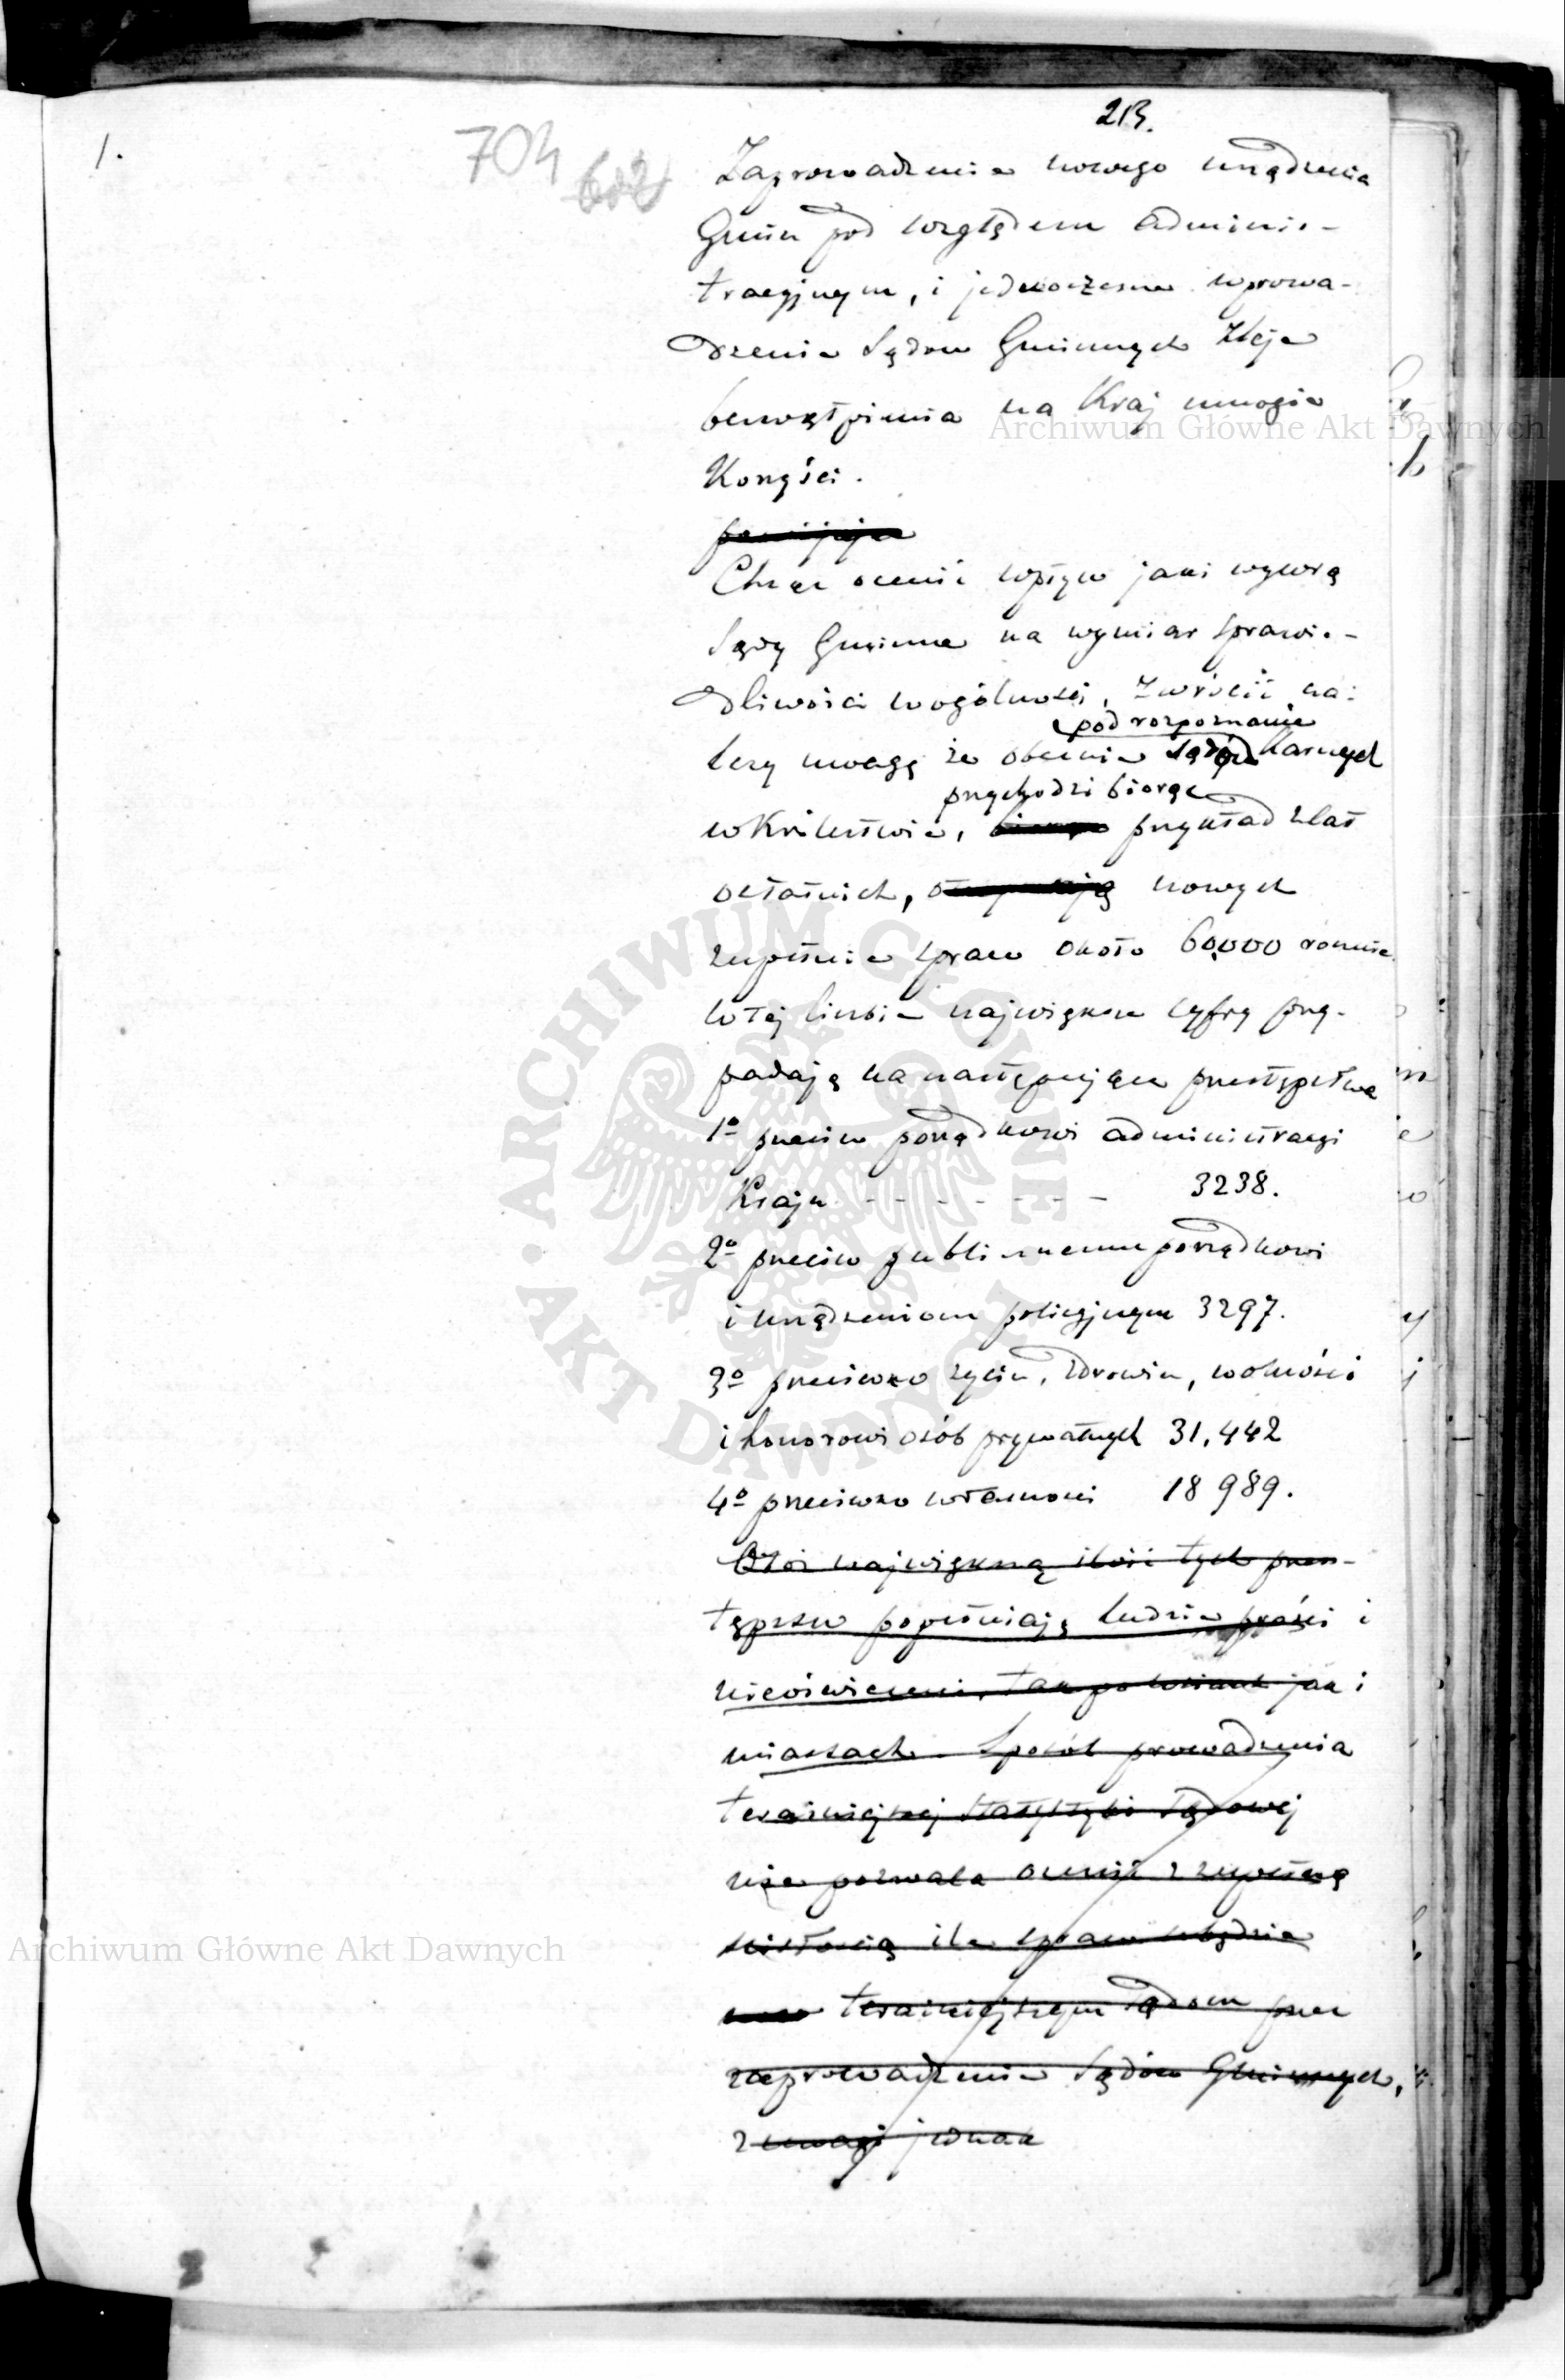 213.
1.
704 602
Zaprowadzenie nowego urządzenia
Gmin pod względem adminis-
tracyjnym, i jednoczesne wprowa-
dzenie Sądów Gminnych zleje
bezwątpienia na Kraj mnogie
Korzyści.
Chcąc ocenić wpływ jaki wywrą
Sądy Gminne na wymiar sprawie-
dliwości wogólności, zwrócić na-
pod rozpoznanie
leży uwagę że obecnie Sądów Karnych
przychodzi biorąc
w Królestwie, przykład z lat
ostatnich, nowych
zupełnie spraw około 60,000 rocznie.
W tej liczbie największe cyfry przy-
padają na następujące przestępstwa
1o przeciw porządkowi administracyi
Kraju - - - - - - - - 3238.
2o przeciw publicznemu porządkowi
i urządzeniom policyjnym 3297.
3o przeciwko życiu, zdrowiu, wolności
i honorowi osób prywatnych 31,442
4o przeciwko własności 18989.
Otóż największą ilość tych przes-
tępstw popełniają ludzie prości i
nieoświeceni, tak po wsiach jak i
miastach. Sposób prowadzenia
teraźniejszej statystyki sądowej
nie pozwala ocenić z zupełną
ścisłością ile spraw ubędzie
teraźniejszym sądom przez
zaprowadzenie Sądów Gminnych,
z uwagi jednak
Archiwum Główne Akt Dawnych
Archiwum Główne Akt Dawnych
ARCHIWUM GŁÓWNE • AKT DAWNYCH •